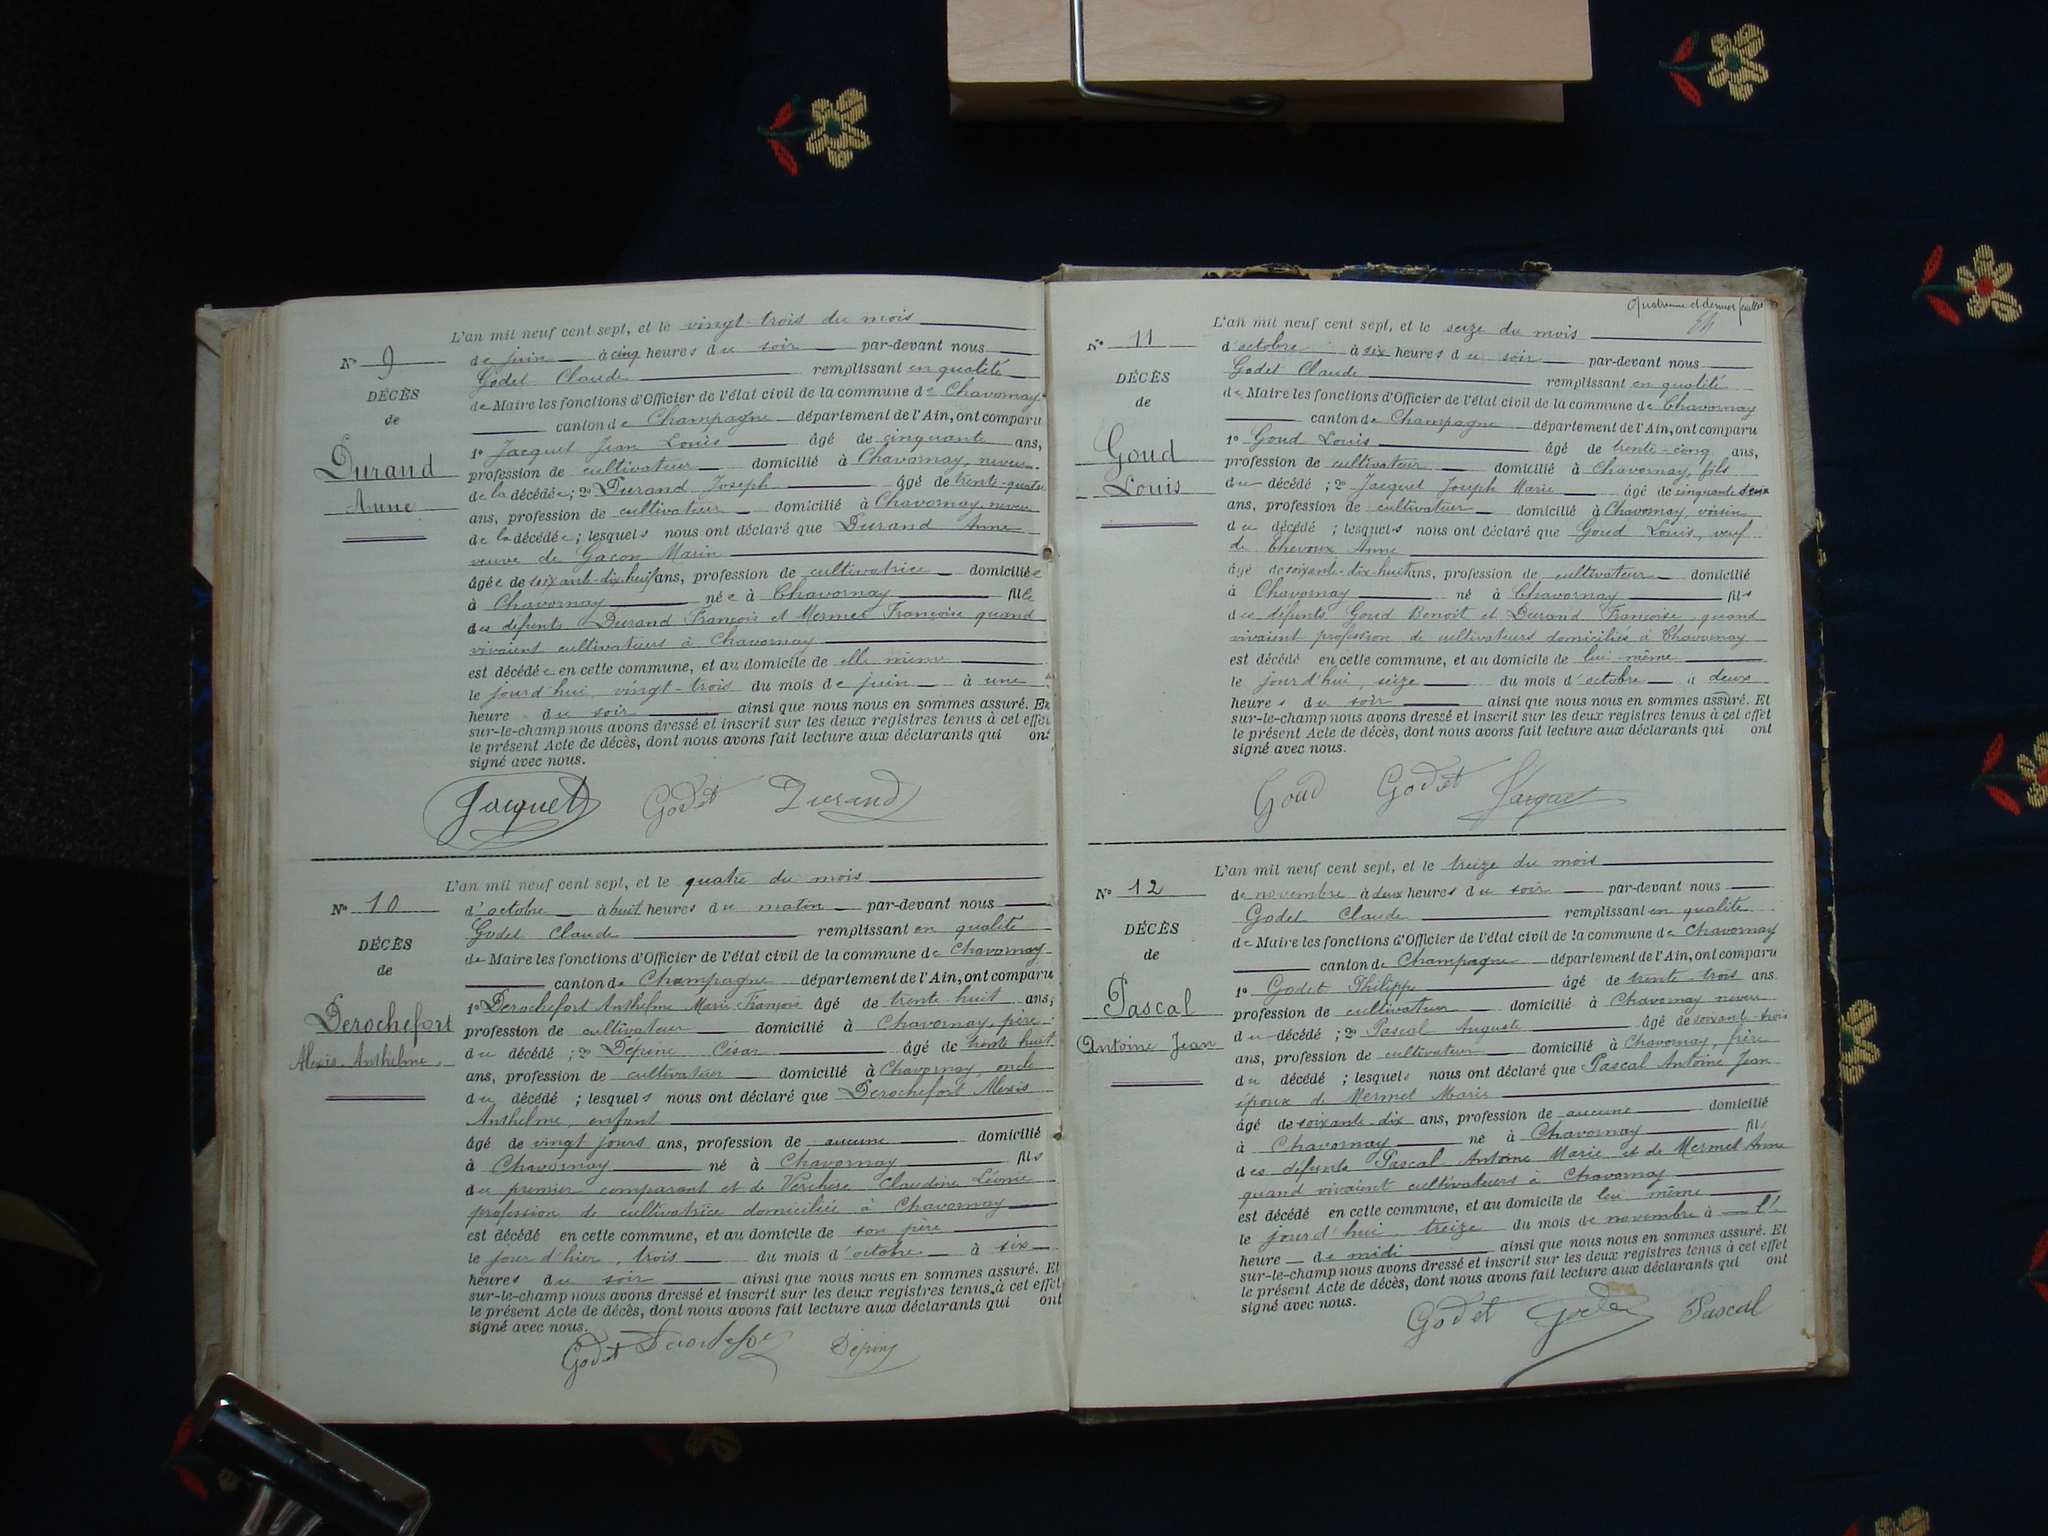 L'an mil neuf cent sept, et le vingt-trois du mois
N° 9 de juin à cinq heures du soir par-devant nous
Godet Claude remplissant en qualité
DÉCÈS de Maire les fonctions d'Officier de l'état civil de la commune de Chavornay
de canton de Champagne département de l'Ain, ont comparu
1° Jacquet Jean Louis âgé de cinquante ans,
Durand profession de cultivateur domicilié à Chavornay, neveu
de la décédée; 2° Durand Joseph âgé de trente-quatre
Anne ans, profession de cultivateur domicilié à Chavornay neveu
de la décédée; lesquels nous ont déclaré que Durand Anne
veuve de Gacon Marin
âgée de soixante-dix-huit ans, profession de cultivatrice domiciliée
à Chavornay née à Chavornay fille
des défunts Durand François et Mermet Françoise quand
vivaient cultivateurs à Chavornay
est décédée en cette commune, et au domicile de elle même
le jourd'hui vingt-trois du mois de juin à une
heure du soir ainsi que nous nous en sommes assuré. Et
sur-le-champ nous avons dressé et inscrit sur les deux registres tenus à cet effet
le présent Acte de décès, dont nous avons fait lecture aux déclarants qui ont
signé avec nous.
Jacquet Godet Durand
L'an mil neuf cent sept, et le quatre du mois
N° 10 d'octobre à huit heures du matin par-devant nous
Godet Claude remplissant en qualité
DÉCÈS de Maire les fonctions d'Officier de l'état civil de la commune de Chavornay
de canton de Champagne département de l'Ain, ont comparu
1° Derochefort Anthelme Marie François âgé de trente huit ans,
Derochefort profession de cultivateur domicilié à Chavornay, père
du décédé; 2° Dépine César âgé de trente huit
Alexis Anthelme ans, profession de cultivateur domicilié à Chavornay, oncle
du décédé; lesquels nous ont déclaré que Derochefort Alexis
Anthelme, enfant
âgé de vingt jours ans, profession de aucune domicilié
à Chavornay né à Chavornay fils
du premier comparant et de Claudine Léonie
profession de cultivatrice domiciliée à Chavornay
est décédé en cette commune, et au domicile de son père
le jour d'hier, trois du mois d'octobre à six
heures du soir ainsi que nous nous en sommes assuré. Et
sur-le-champ nous avons dressé et inscrit sur les deux registres tenus à cet effet
le présent Acte de décès, dont nous avons fait lecture aux déclarants qui ont
signé avec nous.
Godet Derochefort Dépine
Quatrième et dernier feuillet
L'an mil neuf cent sept, et le seize du mois
N° 11 d'octobre à six heures du soir par-devant nous
Godet Claude remplissant en qualité
DÉCÈS de Maire les fonctions d'Officier de l'état civil de la commune de Chavornay
de canton de Champagne département de l'Ain, ont comparu
1° Goud Louis âgé de trente-cinq ans,
Goud profession de cultivateur domicilié à Chavornay, fils
Louis du décédé; 2° Jacquet Joseph Marie âgé de cinquante deux
ans, profession de cultivateur domicilié à Chavornay, voisin
du décédé; lesquels nous ont déclaré que Goud Louis, veuf
de Chevoux Anne
âgé de soixante-dix-huit ans, profession de cultivateur domicilié
à Chavornay né à Chavornay fils
des défunts Goud Benoît et Durand Françoise, quand
vivaient profession de cultivateurs domiciliés à Chavornay
est décédé en cette commune, et au domicile de lui même
le jourd'hui, seize du mois d'octobre à deux
heures du soir ainsi que nous nous en sommes assuré. Et
sur-le-champ nous avons dressé et inscrit sur les deux registres tenus à cet effet
le présent Acte de décès, dont nous avons fait lecture aux déclarants qui ont
signé avec nous.
Goud Godet Jacquet
L'an mil neuf cent sept, et le treize du mois
N° 12 de novembre à deux heures du soir par-devant nous
Godet Claude remplissant en qualité
DÉCÈS de Maire les fonctions d'Officier de l'état civil de la commune de Chavornay
de canton de Champagne département de l'Ain, ont comparu
1° Godet Philippe âgé de trente-trois ans
Pascal profession de cultivateur domicilié à Chavornay neveu
du décédé; 2° Pascal Auguste âgé de soixante-trois
Antoine Jean ans, profession de cultivateur domicilié à Chavornay, frère
du décédé; lesquels nous ont déclaré que Pascal Antoine Jean
époux de Mermet Marie
âgé de soixante-dix ans, profession de aucune domicilié
à Chavornay né à Chavornay fils
des défunts Pascal Antoine Marie et de Mermet Anne
quand vivaient cultivateurs à Chavornay
est décédé en cette commune, et au domicile de lui même
le jourd'hui treize du mois de novembre à l'
heure de midi ainsi que nous nous en sommes assuré. Et
sur-le-champ nous avons dressé et inscrit sur les deux registres tenus à cet effet
le présent Acte de décès, dont nous avons fait lecture aux déclarants qui ont
signé avec nous.
Godet Godet Pascal